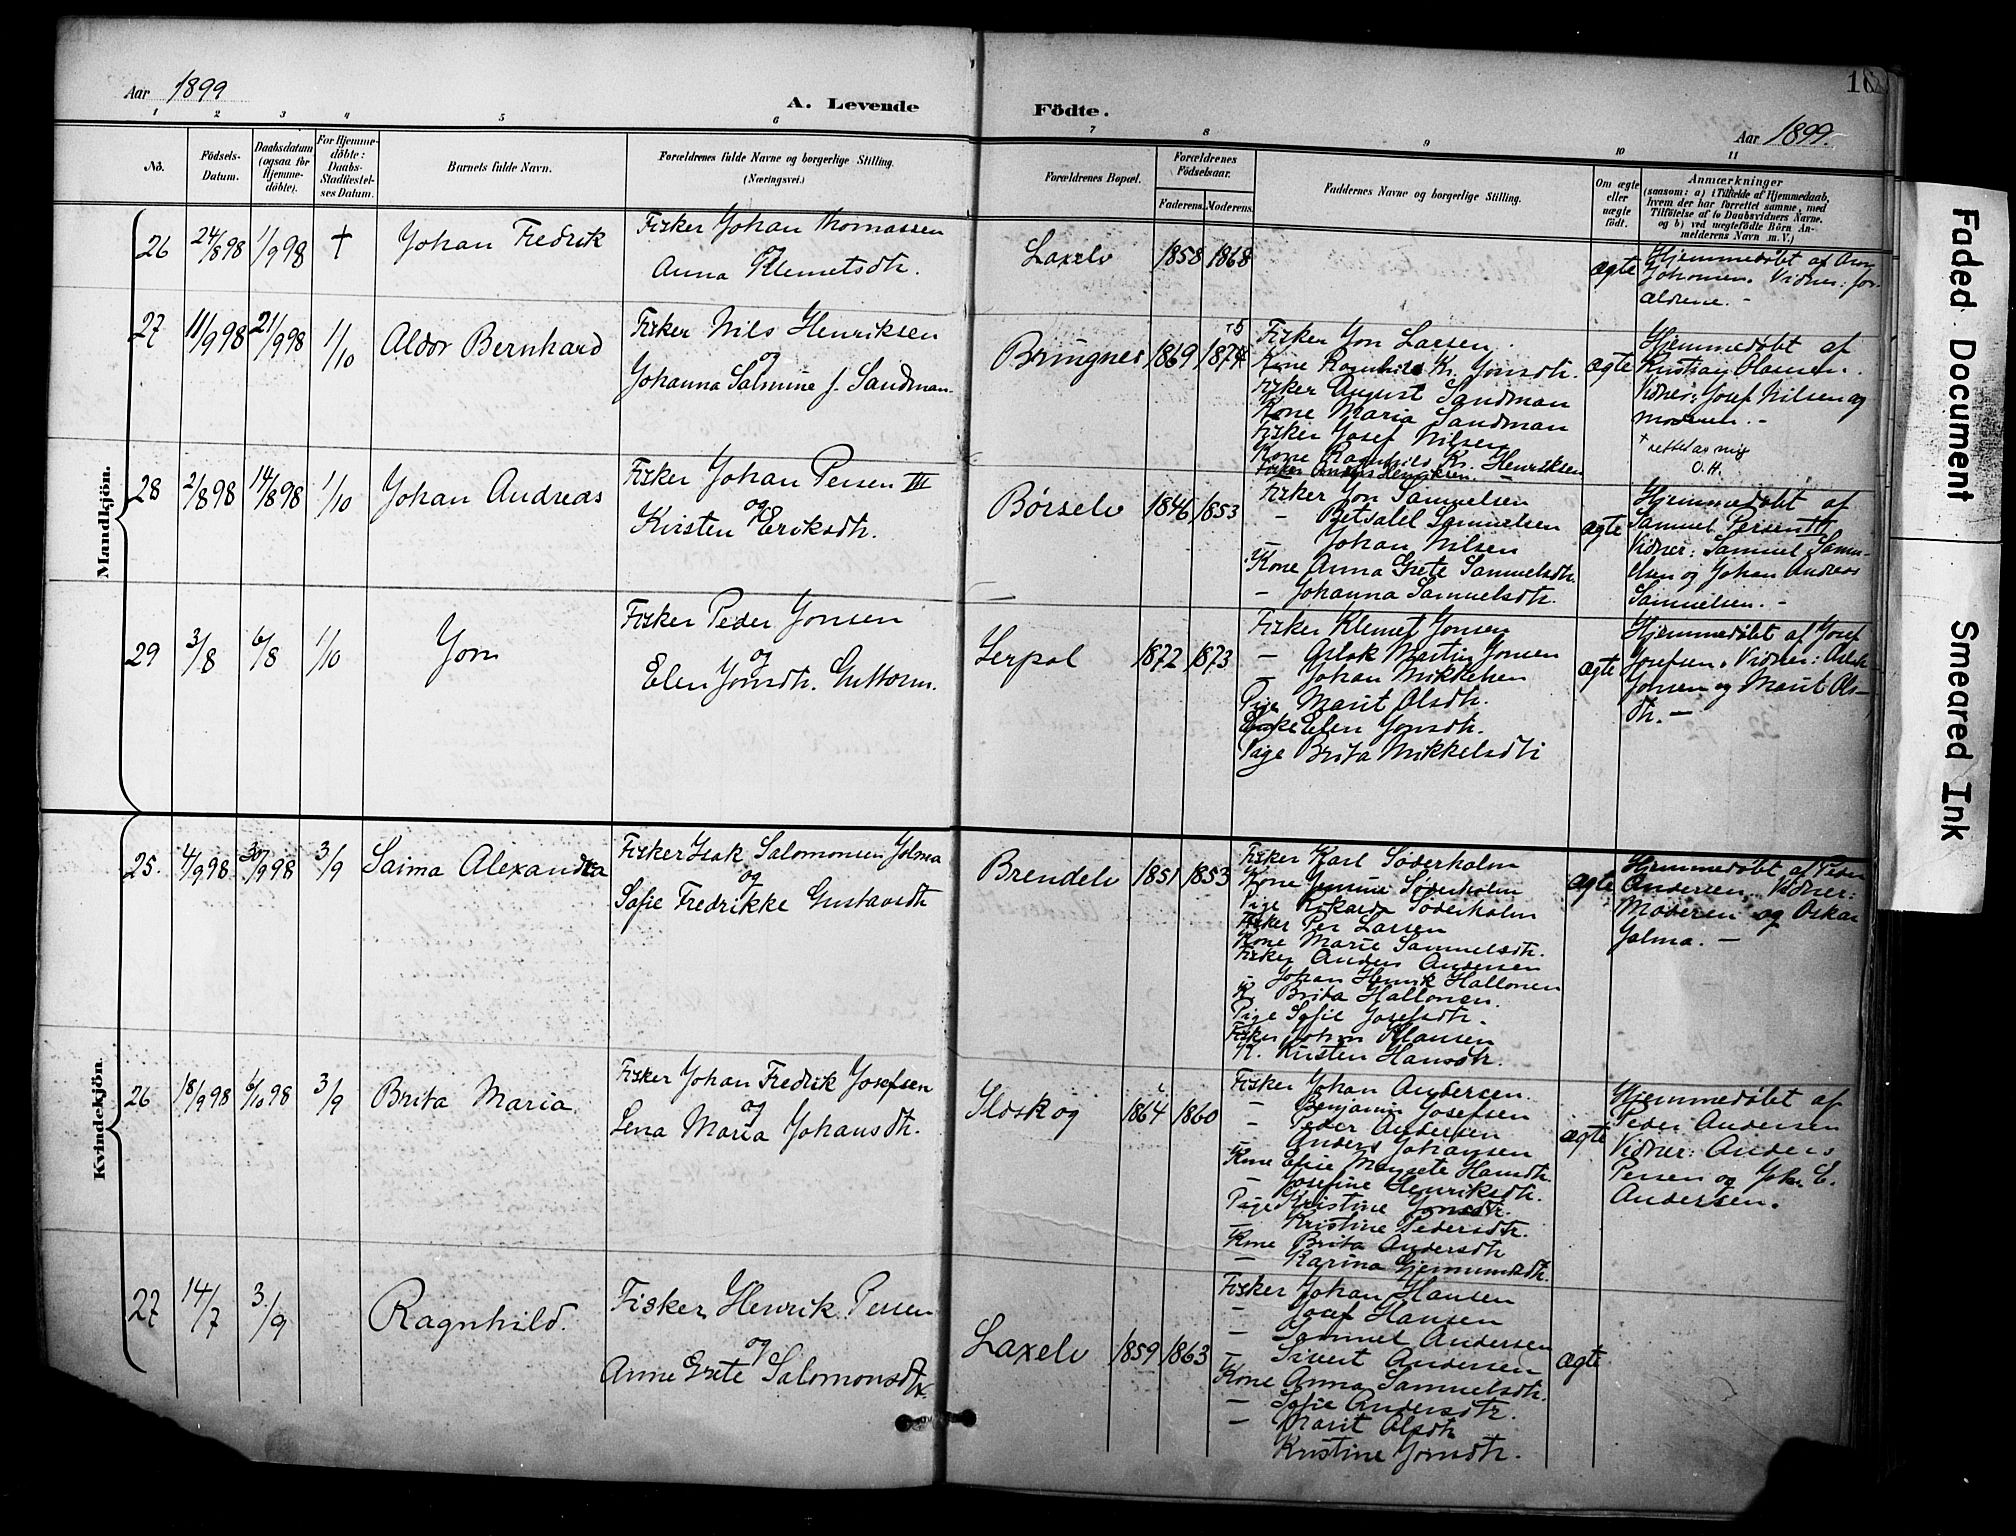 Aar 1899
A. Levende
Födte.
Aar 1899.
1 2 3 4 5 6 7 8 9 10 11
No.
Födsels-
Datum.
Daabsdatum
(ogsaa for
Hjemme-
döbte).
For Hjemme-
döbte:
Daabs-
Stadfæstel-
ses Datum.
Barnets fulde Navn.
Forældrenes fulde Navne og borgerlige Stilling.
(Næringsvei.)
Forældrenes Bopæl.
Forældrenes
Födselsaar.
Faderens. Moderens.
Faddernes Navne og borgerlige Stilling.
Om ægte
eller
uægte
født.
Anmærkninger
(saasom: a) i Tilfælde af Hjemmedaab,
hvem der har forrettet samme, med
Tilföielse af to Daabsvidners Navne,
og b) ved uægtefödte Börn An-
melderens Navn m. V.)
Mandkjön.
26 24/8 98 1/9 98 † Johan Fredrik
Fisker Johan Thomassen
og
Anna Klemetsdtr.
Laxelv 1858 1868 ægte
Hjemmedøbt af
Johansen. Vidner: for-
ældrene. -
27 11/9 98 21/9 98 1/10 Aldor Bernhard
Fisker Nils Henriksen
og
Johanna Salmine f. Sandman.
Bringnes 1869 1874 5
Fisker Jon Larsen.
Kone Ragnhild K. Jonsdtr.
Fisker August Sandman
Kone Maria Sandman
Fisker Josef Nilsen
Kone Ragnhild Kr. Henriksen
Fisker Anders Henriksen. -
ægte
Hjemmedøbt af
Kristian Olausen.
Vidner: Josef Nilsen og
moderen. -
+ rettet as mig
O. H.
28 2/8 98 14/8 98 1/10 Johan Andreas
Fisker Johan Persen III
og
Kirsten Eriksdtr.
Børselv 1846 1853
Fisker Jon Samuelsen
- Betsalel Samuelsen
- Johan Nilsen
Kone Anna Grete Samuelsdtr.
- Johanna Samuelsdtr.
ægte
Hjemmedøbt af
Samuel Persen III
Vidner: Samuel Samu-
elsen og Johan Andreas
Samuelsen. -
29 3/8 6/8 1/10 Jon
Fisker Peder Jonsen
og
Elen Jonsdtr. Guttorm.
Lerpol 1872 1873
Fisker Klemet Jonsen
- Aslak Martin Jonsen
- Johan Mikkelsen
Pige Marit Olsdtr.
Enke Elen Jonsdtr.
Pige Brita Mikkelsdtr
ægte
Hjemmedøbt af Josef
Josefsen. Vidner: Aslak
Jonsen og Marit Ols-
dtr. -
Kvindekjön
25. 4/9 98 30/9 98 3/9 Saima Alexandra
Fisker Isak Salomonsen Jolma
og
Sofie Fredrikke Gustavsdtr
Brendelv 1851 1853
Fisker Karl Söderholm
Kone Jensine Söderholm
Pige Rikarda Söderholm
Fisker Per Larsen
Kone Marie Sammelsdtr.
Fisker Anders Andersen
Johan Henrik Hallonen
K. Brita Hallonen.
Pige Sofie Josefsdtr.
Fisker Johan Klausen
K. Kirsten Hansdtr.
ægte
Hjemmedøbt af Peder
Andersen. Vidner:
Moderen og Oskar
Jolma. -
26 18/9 98 6/10 98 3/9 Brita Maria
Fisker Johan Fredrik Josefsen
og
Lena Maria Johansdtr.
Ildskog 1864 1860
Fisker Johan Andersen.
- Benjamin Josefsen
- Peder Andersen
- Anders Johansen
Kone Sofie Margrete Hansdtr.
- Josefine Henriksdtr.
Pige Kristine Jonsdtr.
- Kristine Pedersdtr.
Kone Brita Andersdtr
- Karina Hjemmundsdtr.
ægte
Hjemmedøbt af
Peder Andersen
Vidner: Anders
Persen og Joh. E.
Andersen.
27 14/7 3/9 Ragnhild.
Fisker Henrik Persen
og
Anne Grete Salomonsdtr.
Laxelv 1859 1863
Fisker Johan Hansen
- Josef Hansen
- Samuel Andersen
- Sivert Andersen
Kone Anna Samuelsdtr.
- Sofie Andersdtr.
- Marit Olsdtr
Kristine Jonsdtr.
ægte
Faded Document
Smeared Ink